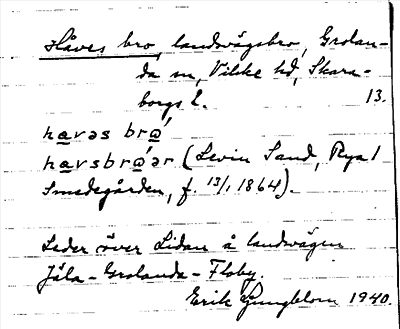 Håves bro, landsvägsbro, Grolan-
da sn, Vilske hd, Skara-
borgs l. 13.
havəs brω´
havsbrω´ər (Levin Sand, Rya 1
Smedegården, f. 13/1 1864).
Leder över Lidan å landsvägen
Jäla - Grolanda - Floby.
Erik Ljungblom 1940.